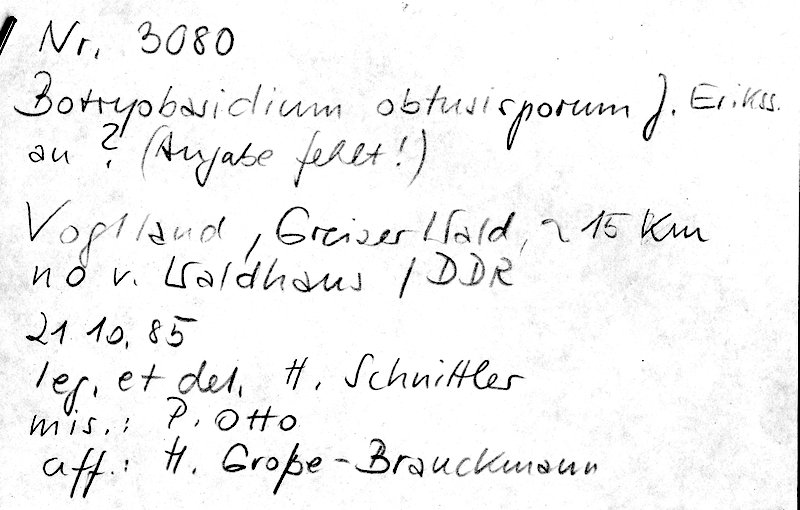 Nr. 3080
Botryobasidium obtusisporum J. Erikss.
an ? (Angabe fehlt!)
Vogtland, Greizer Wald, ~ 15 Km
no v. Waldhaus / DDR
21 10. 85
leg. et det. H. Schnittler
mis.: P. Otto
aff.: H. Große-Brauckmann